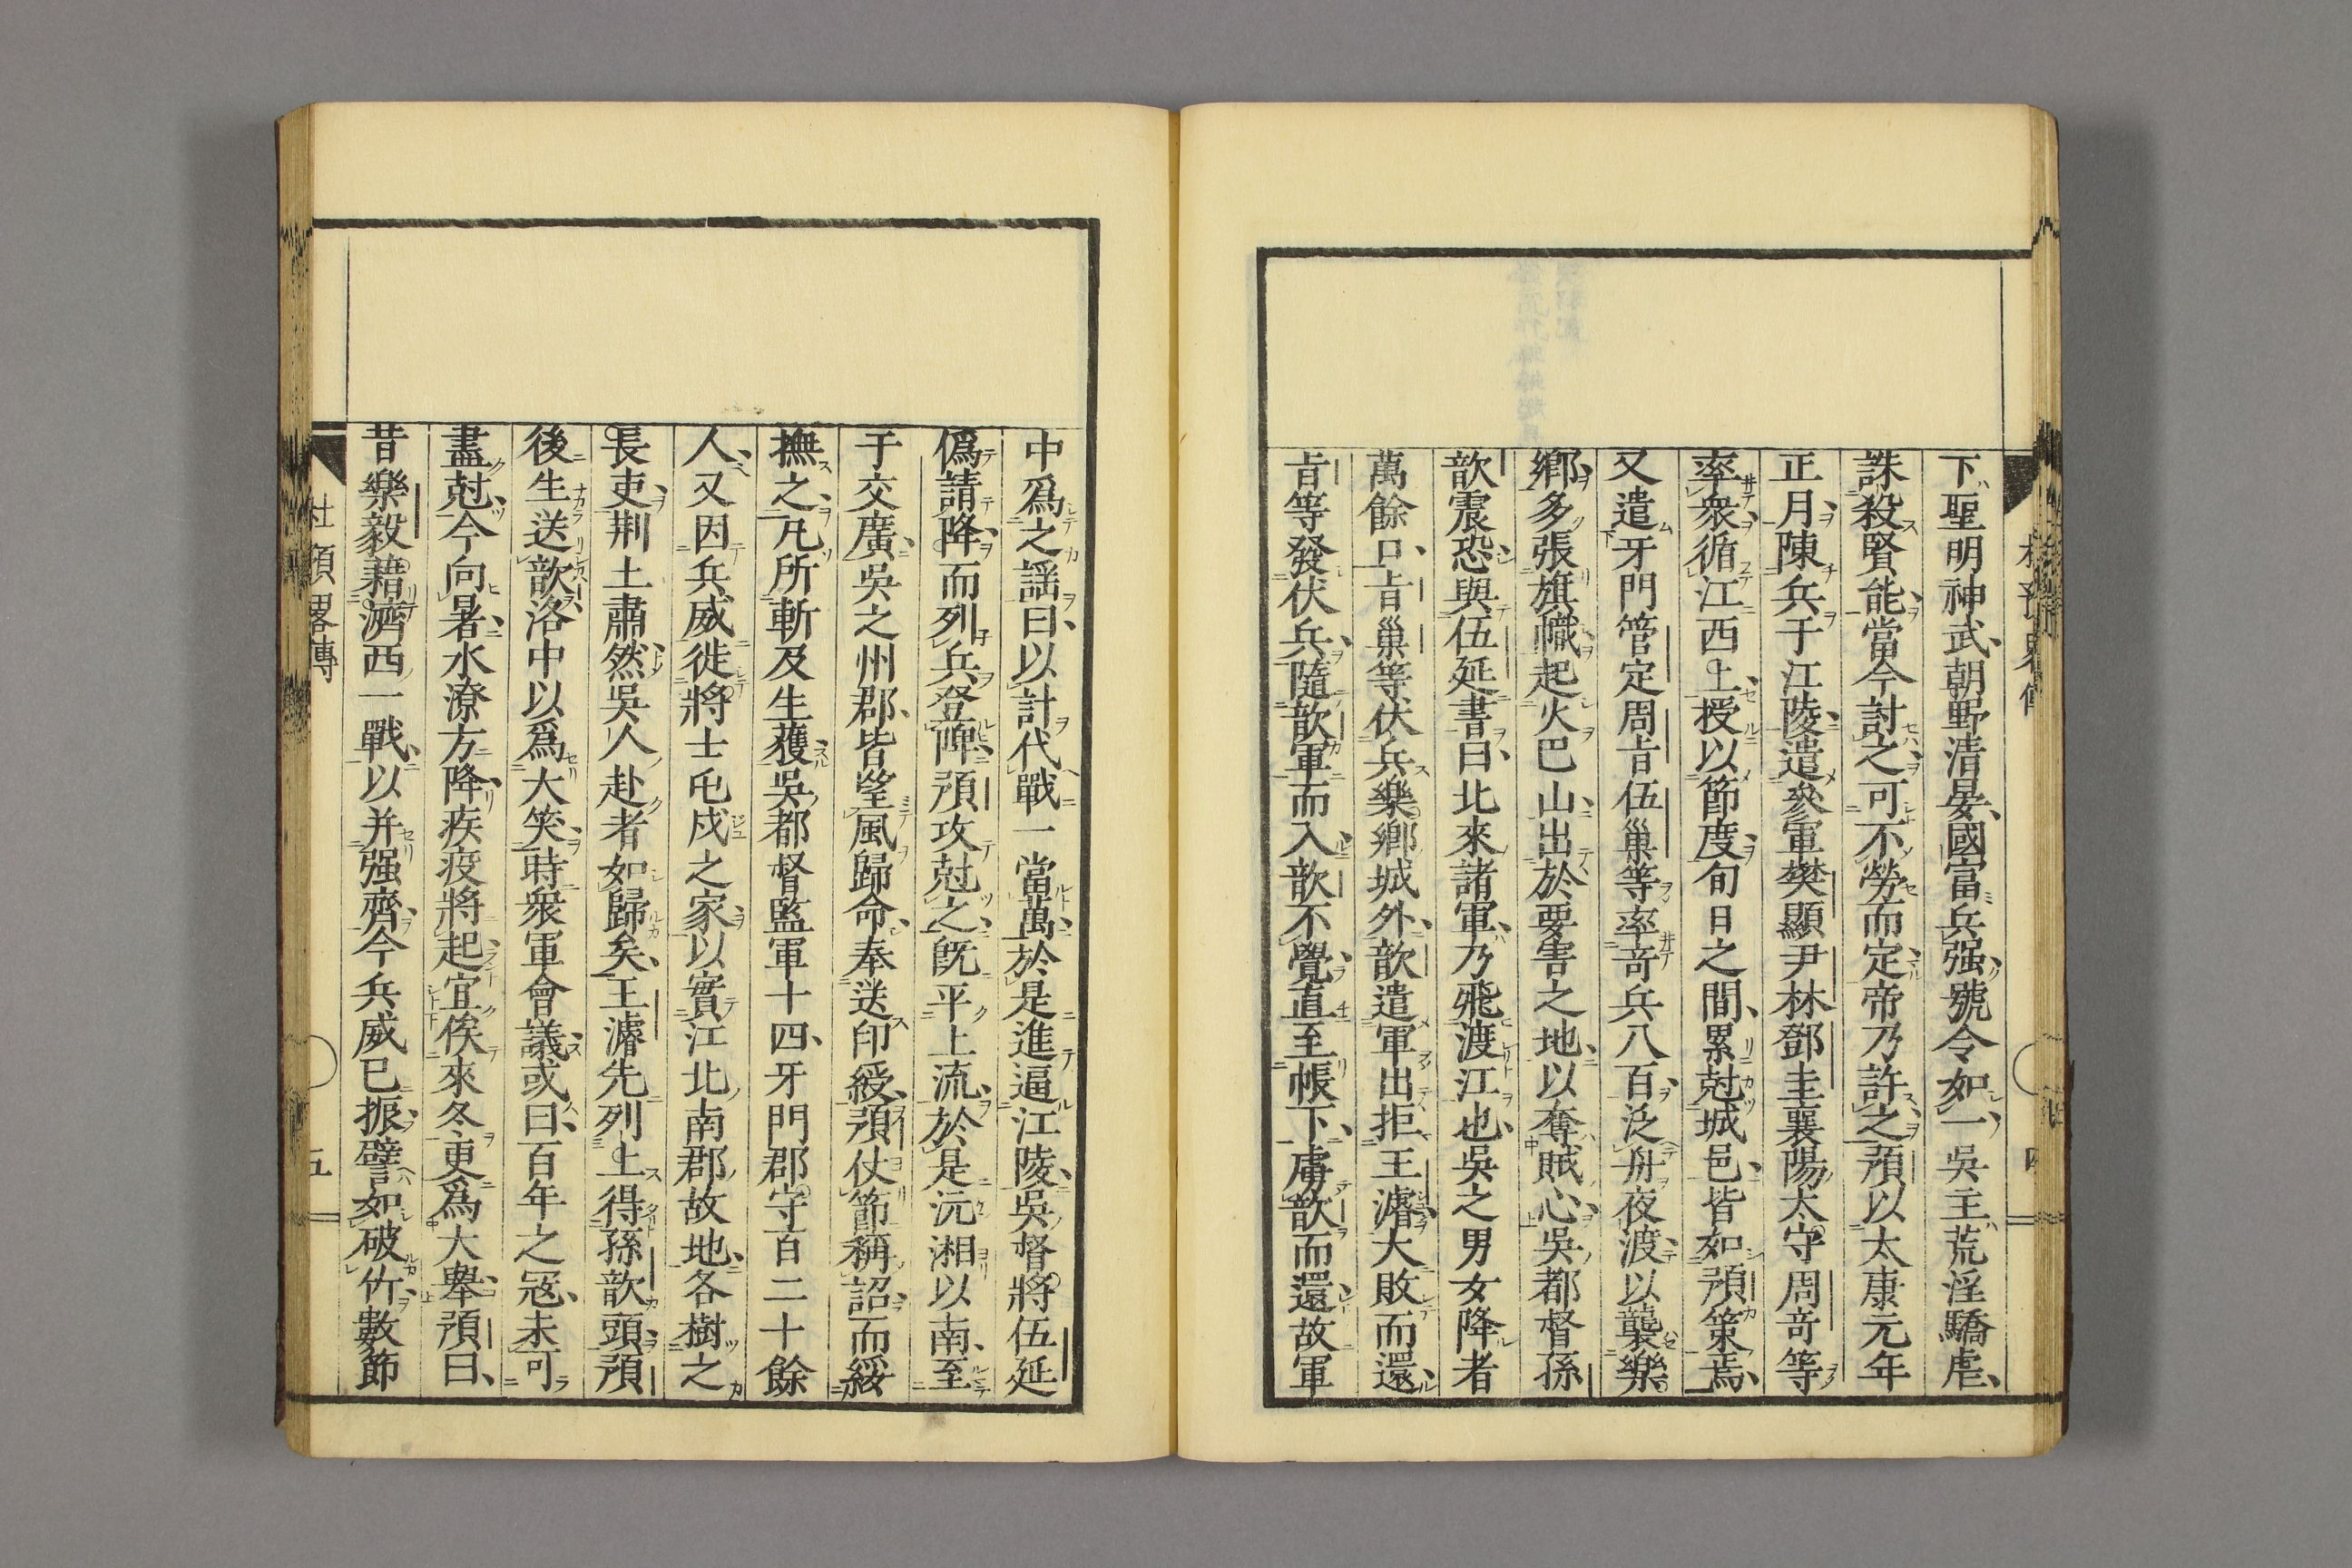 下聖明神武朝野清晏國富兵强號令如一吳主荒淫驕虐
誅殺賢能當今討之可不勞而定帝乃許之預以太康元年
正月陳兵于江陵遣參軍樊顯尹林鄧圭襄陽太守周奇等
率衆循江西上授以節度旬日之間累尅城邑皆如預策焉
又遣牙門管定周旨伍巢等率奇兵八百泛舟夜渡以襲樂
鄉多張旗幟起火巴山出於要害之地以奪賊心吳都督孫
歆震恐與伍延書曰北來諸軍乃飛渡江也吳之男女降者
萬餘口旨巢等伏兵樂鄉城外歆遣軍出拒王濬大敗而還
旨等發伏兵隨歆軍而入歆不覺直至帳下虜歆而還故軍
中爲之謡曰以計代戰一當萬於是進逼江陵吳督將伍延
僞請降而列兵登陴預攻尅之既平上流於是沅湘以南至
于交廣吳之州郡皆望風歸命奉送印綬預仗節稱詔而綏
撫之凡所斬及生獲吳都督監軍十四牙門郡守百二十餘
人又因兵威徙將士屯戍之家以實江北南郡故地各樹之
長吏荆土肅然吳人赴者如歸矣王濬先列上得孫歆頭預
後生送歆洛中以爲大笑時衆軍會議或曰百年之寇未可
盡尅今向暑水潦方降疾疫將起宜俟來冬更爲大舉預曰
昔樂毅藉濟西一戰以并强齊今兵威已振譬如破竹數節
杜預畧傳
五